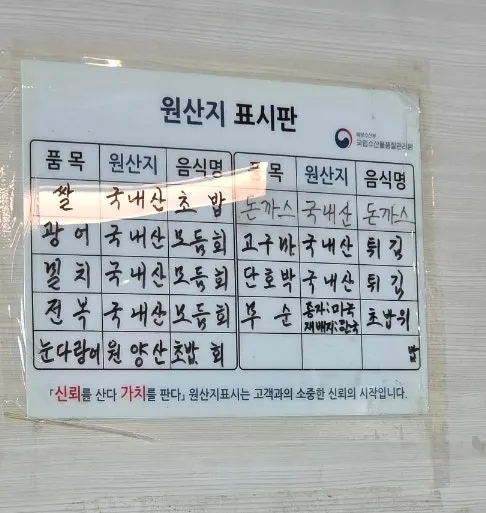 원산지 표시판
해양수산부
국립수산물품질관리원
품목 원산지 음식명 품목 원산지 음식명
쌀 국내산 초밥 돈까스 국내산 돈까스
광어 국내산 모듬회 고구마 국내산 튀김
멸치 국내산 모듬회 단호박 국내산 튀김
전복 국내산 모듬회 무순 종자:미국 재배지:한국 초밥위
눈다랑어 원양산 초밥 회
「신뢰를 산다 가치를 판다」 원산지표시는 고객과의 소중한 신뢰의 시작입니다.